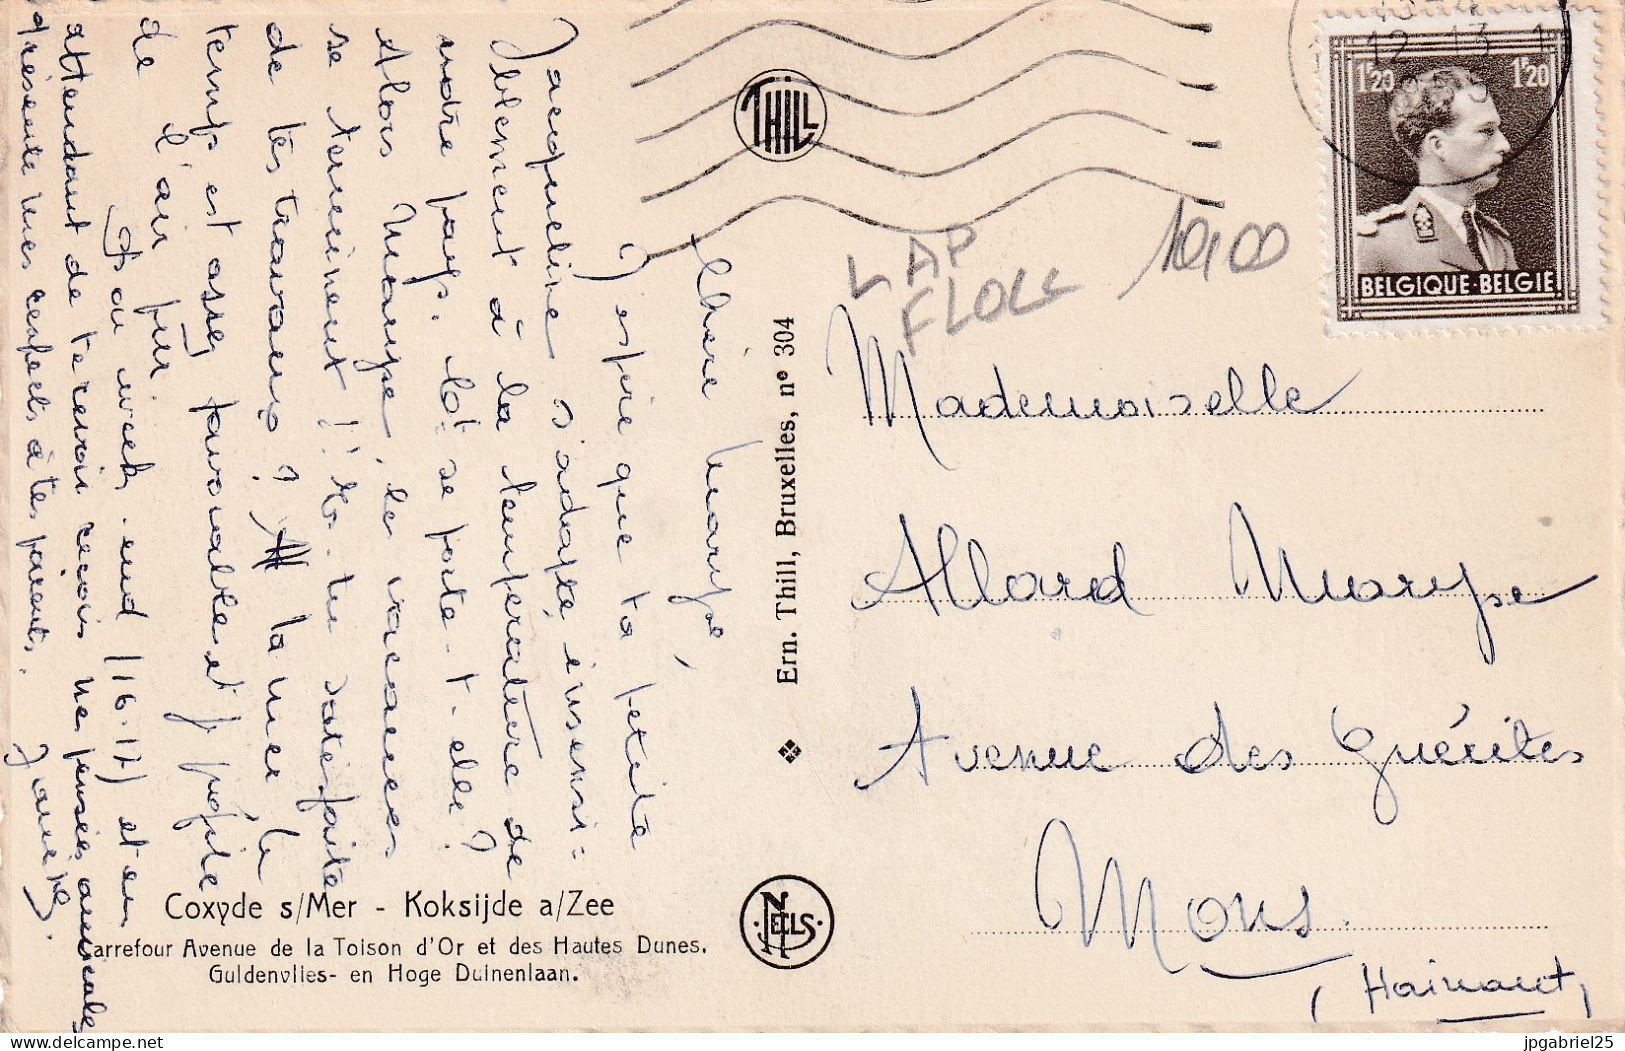 Chère Marypé,
J'espère que ta petite
Jacqueline s'adapte insensi=
blement à la température de
notre pays. Cô! se porte-t-elle?
Alors Marypé, les vacances
se terminent!! Es-tu satisfaite
de tes travaux? A la mer, le
temps est assez favorable et j'profite
de l'air pur.
Bon week-end (16-17) et en
attendant de te revoir reçois mes pensées amicales
présente mes respects à tes parents.
THILL
LAP
FLOLL
10,00
12 - 13
1'20
1'20
BELGIQUE-BELGIE
Mademoiselle
Allard Marypé
Avenue des Guérites
Mons
(Hainaut)
Ern. Thill, Bruxelles, nº 304
NELS
Coxyde s/Mer - Koksijde a/Zee
Carrefour Avenue de la Toison d'Or et des Hautes Dunes.
Guldenvlies- en Hoge Duinenlaan.
www.delcampe.net
jpgabriel25